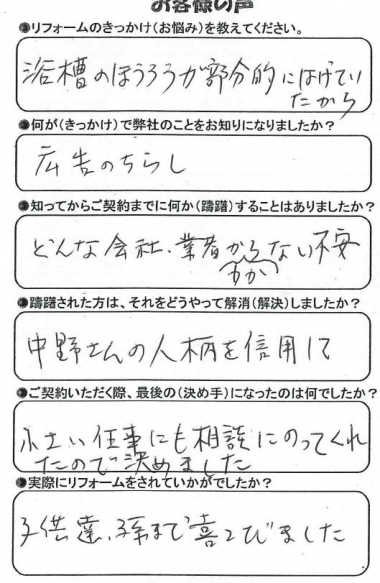 お客様の声
●リフォームのきっかけ(お悩み)を教えてください。
浴槽のほうろうが部分的にはげてい
たから
●何が(きっかけ)で弊社のことをお知りになりましたか?
広告のちらし
●知ってからご契約までに何か(躊躇)することはありましたか?
どんな会社、業者からない不安
わか
●躊躇された方は、それをどうやって解消(解決)しましたか?
中野さんの人柄を信用して
●ご契約いただく際、最後の(決め手)になったのは何でしたか?
小さい仕事にも相談にのってくれ
たので決めました
●実際にリフォームをされていかがでしたか?
子供達、孫まで喜こびました